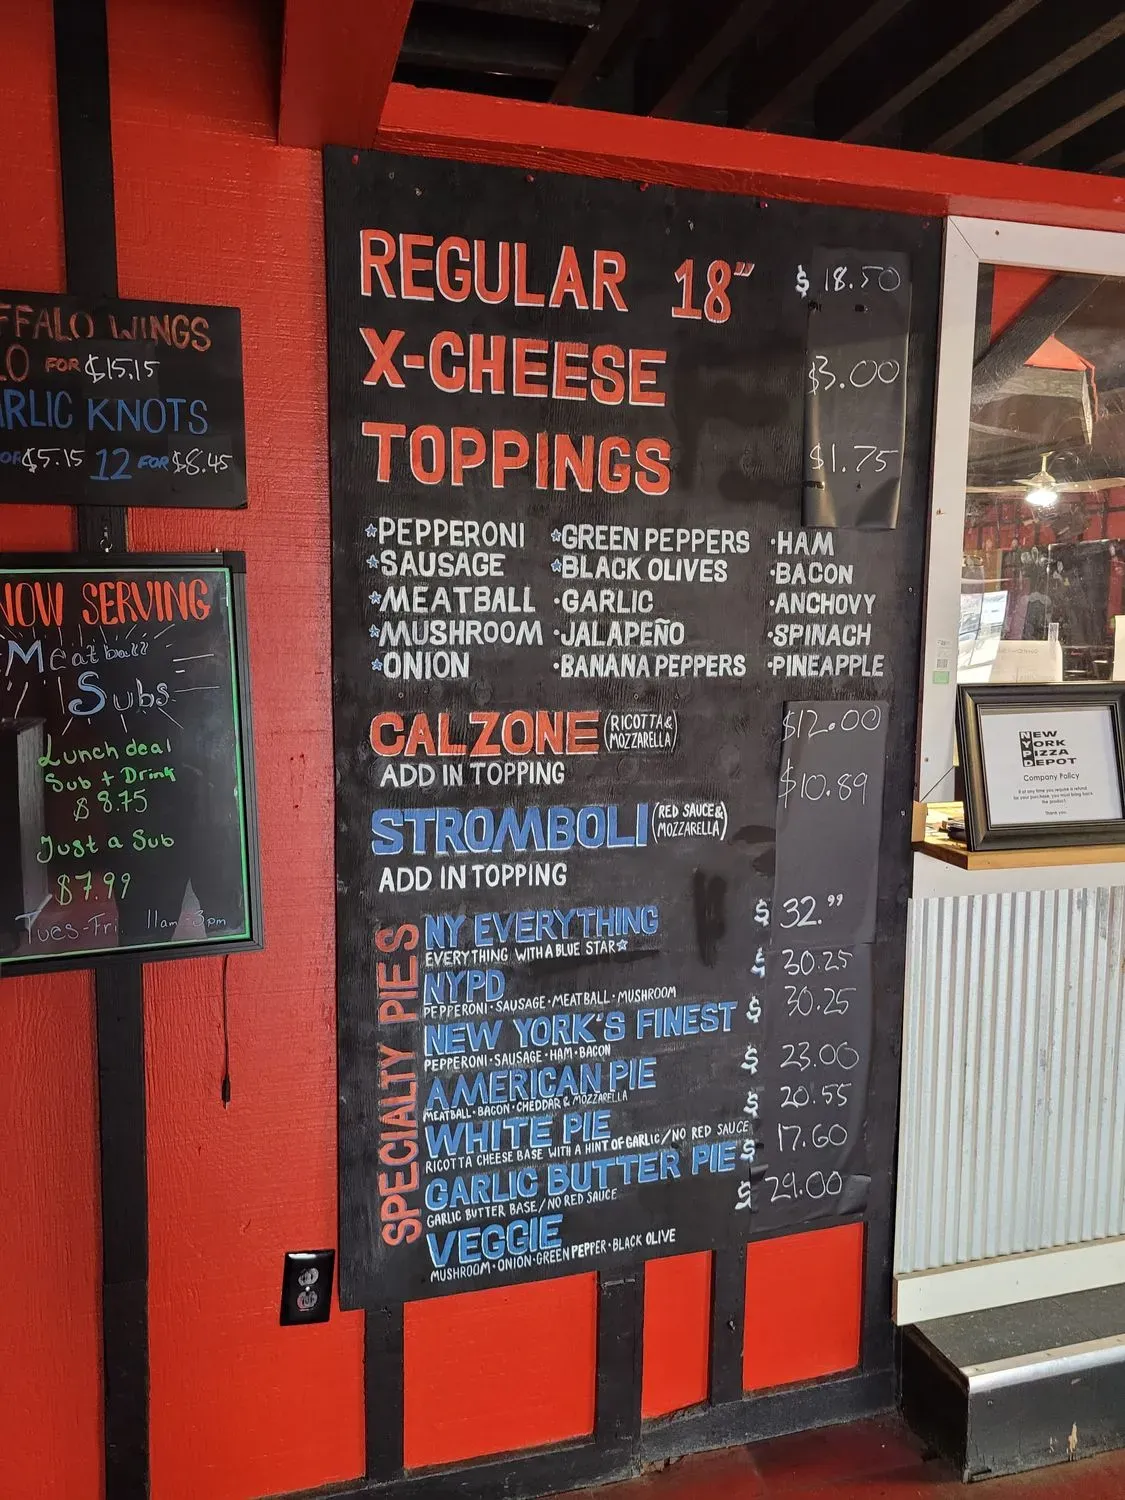 FFALO WINGS
FOR $15.15
RLIC KNOTS
$5.15 12 FOR $8.45
NOW SERVING
Meatball
Subs
Lunch deal
Sub + Drink
$8.75
Just a Sub
$7.99
Tues-Fri 11am-3pm
REGULAR 18" $18.50
X-CHEESE $3.00
TOPPINGS $1.75
PEPPERONI GREEN PEPPERS HAM
SAUSAGE BLACK OLIVES BACON
MEATBALL GARLIC ANCHOVY
MUSHROOM JALAPEÑO SPINACH
ONION BANANA PEPPERS PINEAPPLE
CALZONE (RICOTTA & MOZZARELLA) $12.00
ADD IN TOPPING $10.89
STROMBOLI (RED SAUCE & MOZZARELLA)
ADD IN TOPPING
SPECIALTY PIES
NY EVERYTHING $32.99
EVERYTHING WITH A BLUE STAR
NYPD $30.25
PEPPERONI·SAUSAGE·MEATBALL·MUSHROOM
NEW YORK'S FINEST $30.25
PEPPERONI·SAUSAGE·HAM·BACON
AMERICAN PIE $23.00
MEATBALL·BACON·CHEDDAR & MOZZARELLA
WHITE PIE $20.55
RICOTTA CHEESE BASE WITH A HINT OF GARLIC/NO RED SAUCE
GARLIC BUTTER PIE $17.60
GARLIC BUTTER BASE/NO RED SAUCE
VEGGIE $29.00
MUSHROOM·ONION·GREEN PEPPER·BLACK OLIVE
NEW
YORK
PIZZA
DEPOT
Company Policy
If at any time you require a refund
for your purchase, you must bring back
the product.
Thank you.